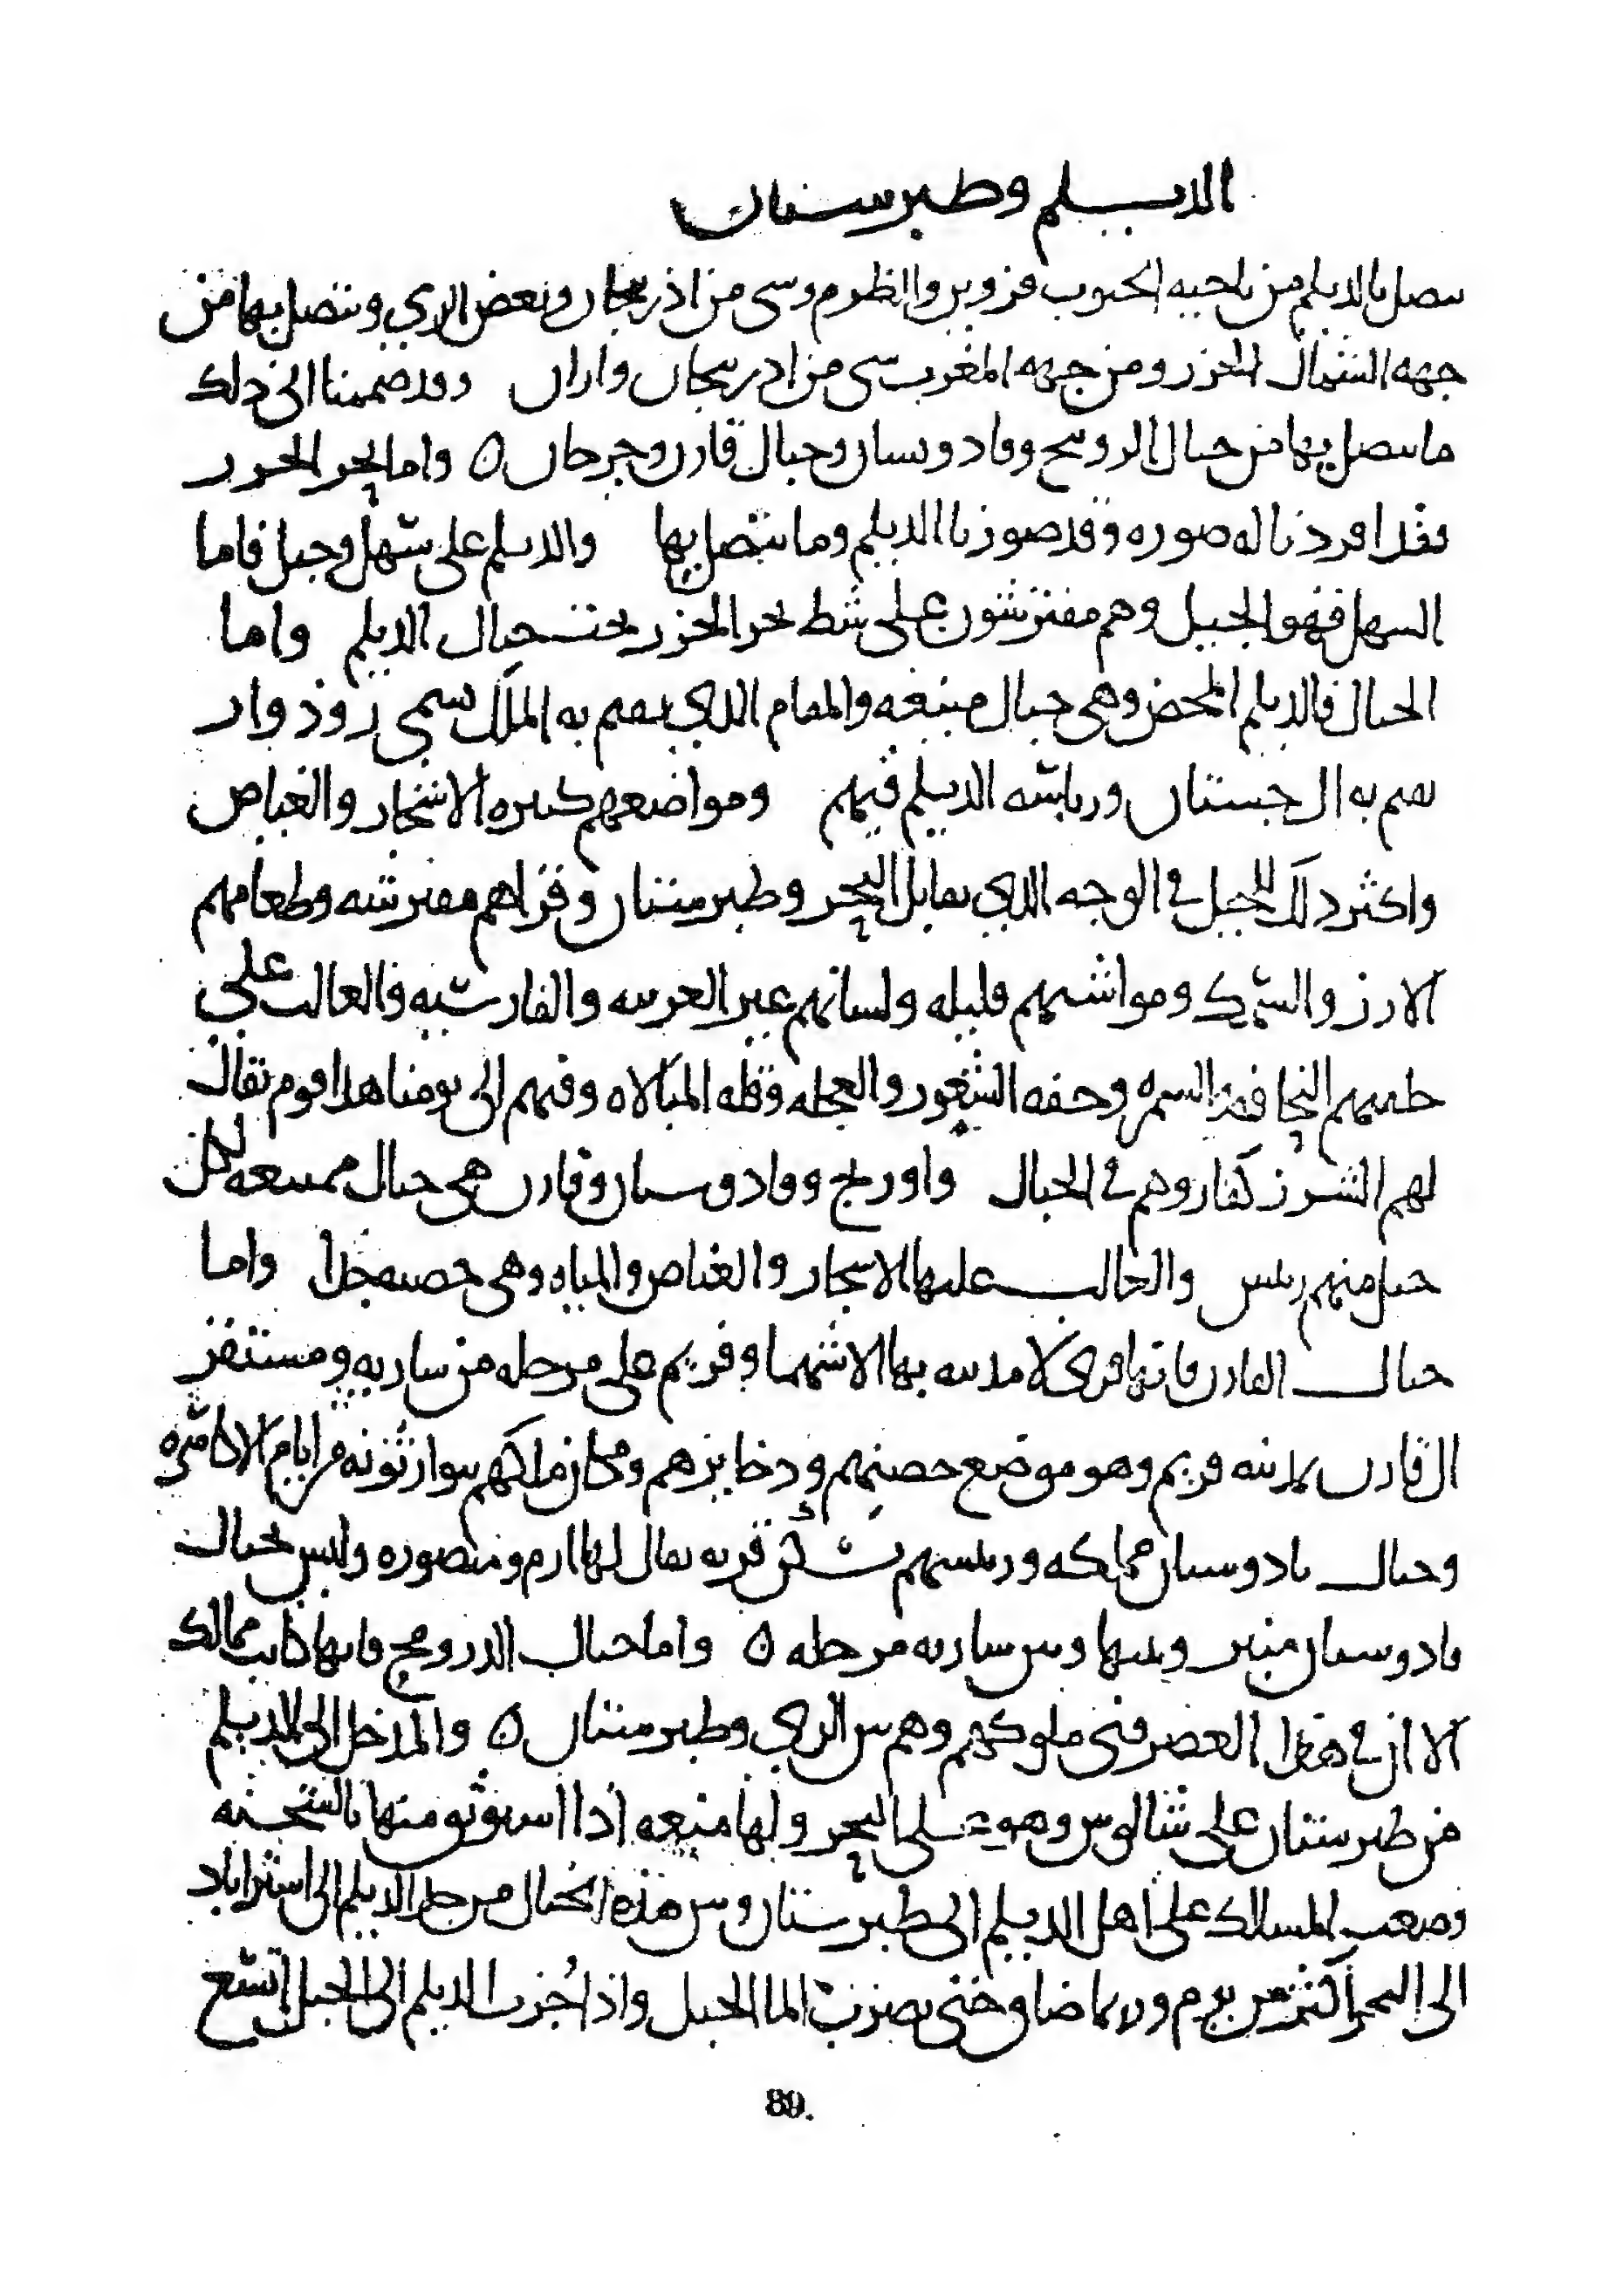 الديلم وطبرستان
يتصل بالديلم من ناحيه الجنوب قزوين والطرم وشى من اذربيجان وبعض الري ويتصل بها من
جهه الشمال الخزر ومن جهه المغرب شى من اذربيجان واران وقد ضممنا الى ذلك
ما يتصل بها من جبال الروبنج وفادوسبان وجبال قارن وجرجان ٥ واما بحر الخزر
فقد افردنا له صوره وقد صورنا الديلم وما يتصل بها والديلم على سهل وجبل فاما
السهل فهو الجبيل وهم مفترشون على شط بحر الخزر تحت جبال الديلم واما
الجبال فالديلم المحض وهى جبال منيعه والمقام الذي يقيم به الملك يسمى روذوار
يقيم به ال جستان ورياسه الديلم فيهم ومواضعهم كثيره الاشجار والغياض
واكثر ذلك للجيل في الوجه الذي يقابل البحر وطبرستان وقراهم مفترشه وطعامهم
الارز والسمك ومواشيهم قليله ولسانهم غير العربيه والفارسيه والغالب على
خلقهم النحافه السمره وخفه الشعور والعجله وقله المبالاه وفيهم الى يومنا هذا قوم يقال
لهم الشرز كفار وهم في الجبال واوربج وفادوسبان وقارن هى جبال ممتنعه لكل
جبل منهم رئيس والغالب عليها الاشجار والغياض والمياه وهى خصبه جدا واما
جبال القارن فانها قرى لا مدينه بها الا شهمار وفريم على مرحله من ساريه ومستقر
ال قارن بمدينه فريم وهو موضع حصنهم وذخايرهم ومكان ملكهم يتوارثونه من ايام الاكاسره
وجبال بادوسبان مملكه ورئيسهم يسكن قريه يقال لها ارم ومنصوره وليس بجبال
بادوسبان منبر وبينها وبين ساريه مرحله ٥ واما جبال الروبنج فانها كانت ممالك
الا ان في هذا العصر فنى ملوكهم وهم بين الري وطبرستان ٥ والمدخل الى الديلم
من طبرستان على شالوس وهو على البحر ولها منعه اذا استوثق منها بالشحنه
وصعب المسالك على اهل الديلم الى طبرستان وبين هذه الجبال من حد الديلم الى استراباذ
الى البحر اكثر من يوم وربما ضاق حتى يضرب الما الجبل واذا جزت الديلم الى الجبل اتسع
89.